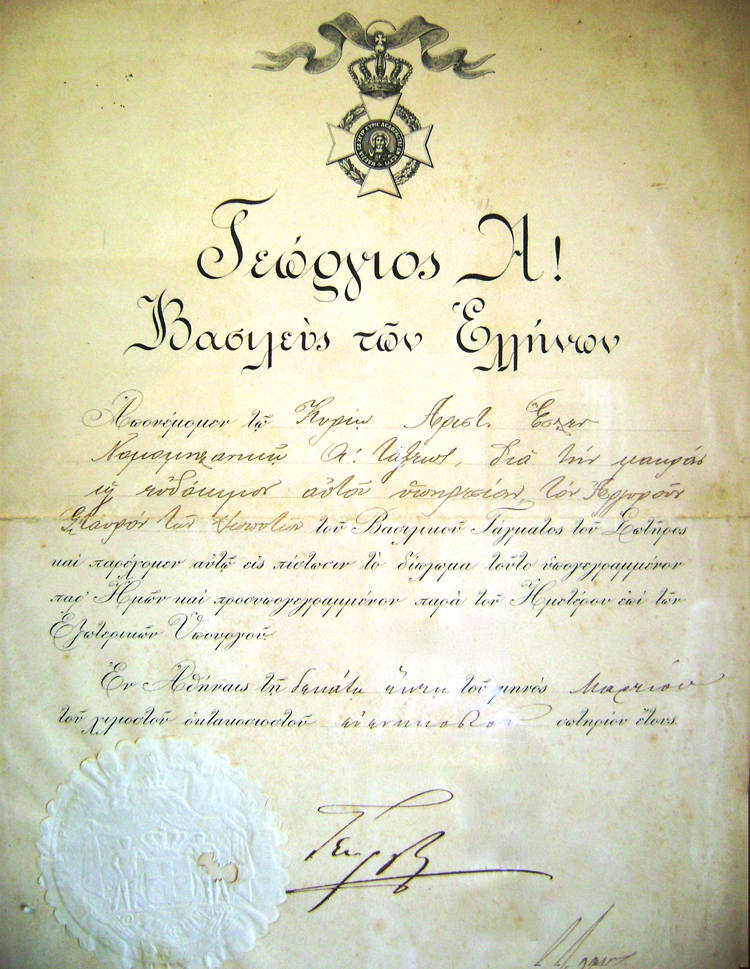 Γεώργιος Α!
Βασιλεὺς τῶν Ἑλλήνων
Ἀπονέμομεν τῷ Κυρίῳ Ἀριστ.
Α! τάξεως, διὰ τὴν μακρὰν
αὐτοῦ ὑπηρεσίαν, τὸν Ἀργυροῦν
Σταυρὸν τῶν Ἱπποτῶν τοῦ Βασιλικοῦ Τάγματος τοῦ Σωτῆρος
καὶ παρέχομεν αὐτῷ εἰς πίστωσιν τὸ δίπλωμα τοῦτο ὑπογεγραμμένον
παρ' Ἡμῶν καὶ προσυπογεγραμμένον παρὰ τοῦ Ἡμετέρου ἐπὶ τῶν
Ἐξωτερικῶν Ὑπουργοῦ.
Ἐν Ἀθήναις τῇ δεκάτῃ ἕκτῃ τοῦ μηνὸς Μαρτίου
τοῦ χιλιοστοῦ ὀκτακοσιοστοῦ ἐνενηκοστοῦ σωτηρίου ἔτους.